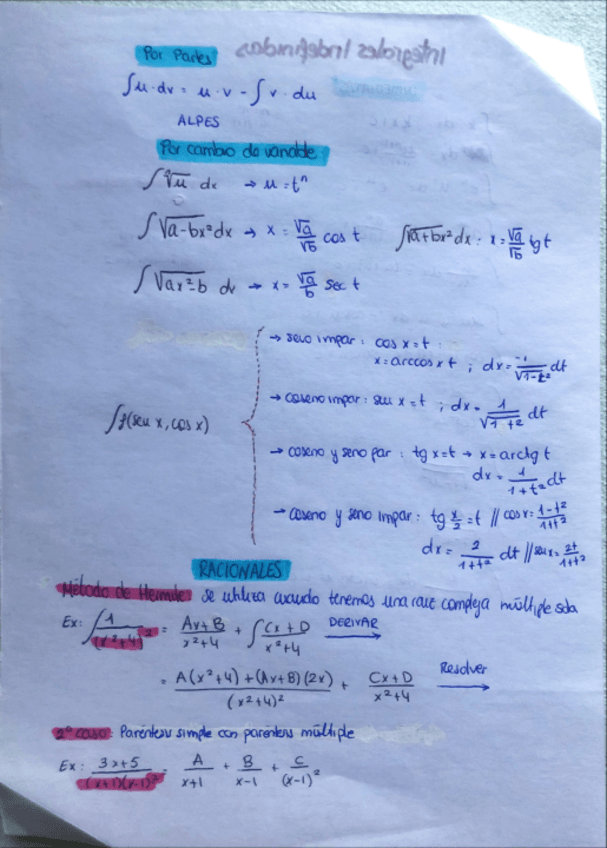 Integrales Indefinidas
Por Partes
∫u·dv = u·v - ∫v·du
ALPES
Por cambio de variable
∫ⁿ√u dx → u = tⁿ
∫√(a-bx²) dx → x = √a/√b cos t    ∫√(a+bx²) dx : x = √a/√b tg t
∫√(ax²-b) dx → x = √a/b sec t
∫f(sen x, cos x)
→ seno impar : cos x = t :
x = arccos x t ; dx = -1/√(1-t²) dt
→ coseno impar : sen x = t ; dx = 1/√(1-t²) dt
→ coseno y seno par : tg x = t → x = arctg t
dx = 1/(1+t²) dt
→ Coseno y seno impar : tg x/2 = t // cos x = (1-t²)/(1+t²)
dx = 2/(1+t²) dt // sen x = 2t/(1+t²)
RACIONALES
Método de Hermite Se utiliza cuando tenemos una raíz compleja múltiple sola
Ex: ∫1/(x²+4)² = (Ax+B)/(x²+4) + ∫(Cx+D)/(x²+4) DERIVAR →
= (A(x²+4)+(Ax+B)(2x))/(x²+4)² + (Cx+D)/(x²+4) Resolver →
2º caso: Paréntesis simple con paréntesis múltiple
Ex: (3x+5)/((x+1)(x-1)²) = A/(x+1) + B/(x-1) + C/(x-1)²